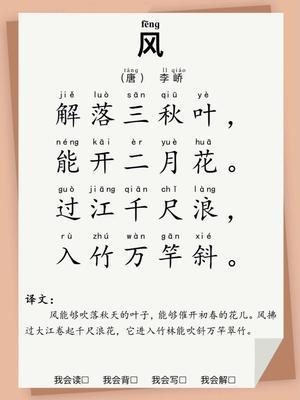 fēng
风
táng lǐ qiáo
（唐） 李峤
jiě luò sān qiū yè
解落三秋叶，
néng kāi èr yuè huā
能开二月花。
guò jiāng qiān chǐ làng
过江千尺浪，
rù zhú wàn gān xié
入竹万竿斜。
译文：
风能够吹落秋天的叶子，能够催开初春的花儿。风拂
过大江卷起千尺浪花，它进入竹林能吹斜万竿翠竹。
我会读□ 我会背□ 我会写□ 我会解□